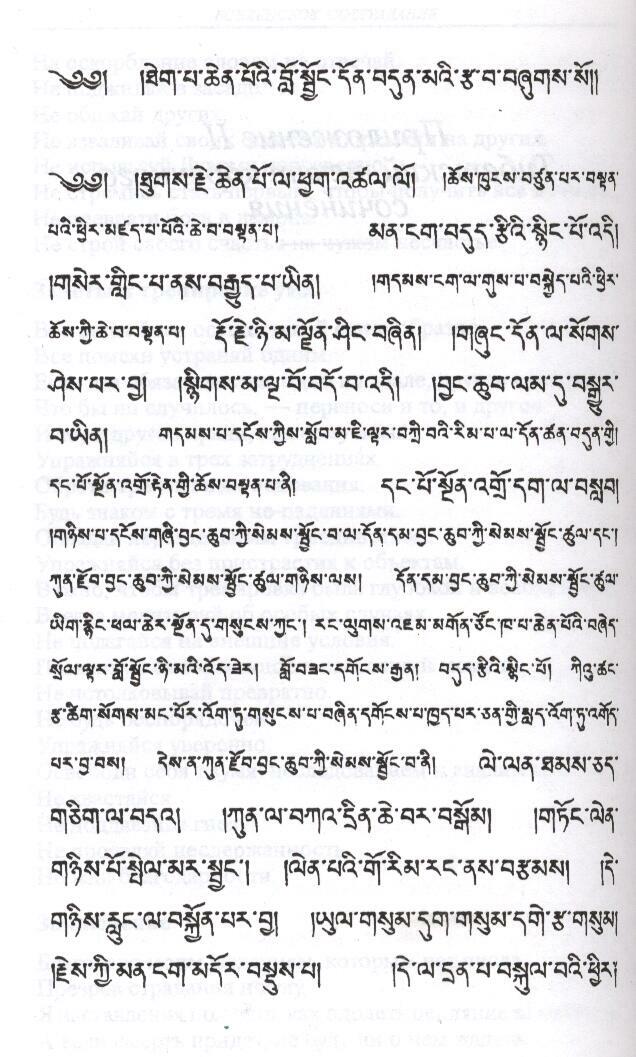 ༄༅། །ཐེག་པ་ཆེན་པོའི་བློ་སྦྱོང་དོན་བདུན་མའི་རྩ་བ་བཞུགས་སོ།།
༄༅། །ཐུགས་རྗེ་ཆེན་པོ་ལ་ཕྱག་འཚལ་ལོ། །ཆོས་ཁུངས་བཙུན་པར་བསྟན་
པའི་ཕྱིར་མཛད་པ་པོའི་ཆེ་བ་བསྟན་པ། མན་ངག་བདུད་རྩིའི་སྙིང་པོ་འདི།
།གསེར་གླིང་པ་ནས་བརྒྱུད་པ་ཡིན། །གདམས་ངག་ལ་གུས་པ་བསྐྱེད་པའི་ཕྱིར་
ཆོས་ཀྱི་ཆེ་བ་བསྟན་པ། རྡོ་རྗེ་ཉི་མ་ལྗོན་ཤིང་བཞིན། །གཞུང་དོན་ལ་སོགས་
ཤེས་པར་བྱ། །སྙིགས་མ་ལྔ་པོ་བདོ་བ་འདི། །བྱང་ཆུབ་ལམ་དུ་བསྒྱུར་
བ་ཡིན། གདམས་པ་དངོས་ཀྱིས་སློབ་མ་ཇི་ལྟར་བཀྲི་བའི་རིམ་པ་ལ་དོན་ཚན་བདུན་གྱི།
དང་པོ་སྔོན་འགྲོ་རྟེན་གྱི་ཆོས་བསྟན་པ་ནི། དང་པོ་སྔོན་འགྲོ་དག་ལ་བསླབ།
།གཉིས་པ་དངོས་གཞི་བྱང་ཆུབ་ཀྱི་སེམས་སྦྱོང་བ་ལ་དོན་དམ་བྱང་ཆུབ་ཀྱི་སེམས་སྦྱོང་ཚུལ་དང་།
ཀུན་རྫོབ་བྱང་ཆུབ་ཀྱི་སེམས་སྦྱོང་ཚུལ་གཉིས་ལས། དོན་དམ་བྱང་ཆུབ་ཀྱི་སེམས་སྦྱོང་ཚུལ་
ཡིག་རྙིང་ཕལ་ཆེར་སྔོན་དུ་གསུངས་ཀྱང་། རང་ལུགས་འཇམ་མགོན་ཙོང་ཁ་པ་ཆེན་པོའི་བཞེད་
སྲོལ་ལྟར་བློ་སྦྱོང་ཉི་མའི་འོད་ཟེར། བློ་བཟང་དགོངས་རྒྱན། བདུད་རྩིའི་སྙིང་པོ། ཀིའུ་ཚང་
རྩ་ཚིག་སོགས་མང་པོར་འོག་ཏུ་གསུངས་པ་བཞིན་དགོངས་པ་ཁྱད་པར་ཅན་གྱི་སླད་འོག་ཏུ་འགོད་
པར་བྱ་བས། དེས་ན་ཀུན་རྫོབ་བྱང་ཆུབ་ཀྱི་སེམས་སྦྱོང་བ་ནི། ལེ་ལན་ཐམས་ཅད་
གཅིག་ལ་བདའ། །ཀུན་ལ་བཀའ་དྲིན་ཆེ་བར་བསྒོམ། །གཏོང་ལེན་
གཉིས་པོ་སྤེལ་མར་སྦྱང་། །ལེན་པའི་གོ་རིམ་རང་ནས་བརྩམས། །དེ་
གཉིས་རླུང་ལ་བསྐྱོན་པར་བྱ། །ཡུལ་གསུམ་དུག་གསུམ་དགེ་རྩ་གསུམ།
།རྗེས་ཀྱི་མན་ངག་མདོར་བསྡུས་པ། །དེ་ལ་དྲན་པ་བསྐུལ་བའི་ཕྱིར།